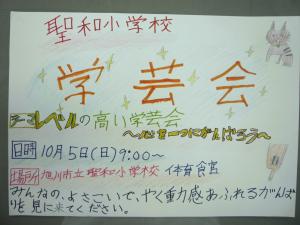 聖和小学校
学芸会
テーマ レベルの高い学芸会
～心を一つにがんばろう～
日時 10月5日(日)9:00～
場所 旭川市立聖和小学校 体育館
みんなの、よさこいで、やく動感あふれるがんば
りを見に来てください。